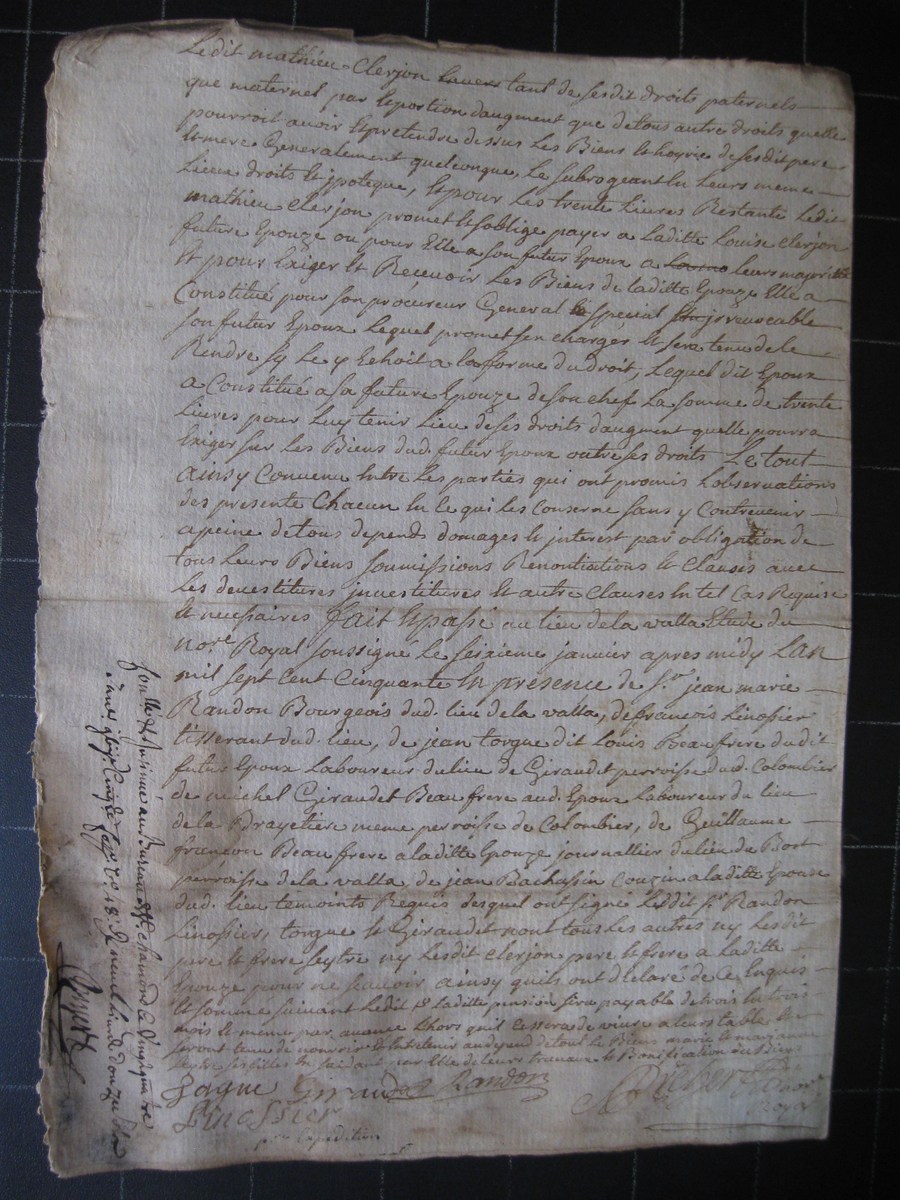 Ledit mathieu Clerjon tant de sesdit droits paternels
que maternel par Eportion daugment que detous autre droits quelle
pourroit avoir Et pretendre dessus Les Biens Et hoyrie de sesdit pere
Et mere Generalement quelconque, Le subrogeant En Leurs meme
Lieux droits Et ipoteque, Et pour Les trente Livres Restante Ledit
mathieu Clerjon promet Et soblige payer a Laditte Louise Clerjon
future Epouze ou pour Elle a son futur Epoux a leurs majorité
Et pour Exiger Et Recevoir Les Biens de laditte Epouze Elle a
Constitué pour son procureur General special irrevocable
son futur Epoux Lequel promet sen charger Et sera tenu de le
Rendre sy le y Echoit a la forme du droit, Lequel dit Epoux
a Constitué a sa future Epouze de son chef La somme de trente
Livres pour Luy tenir Lieu de ses droits daugment quelle pourra
Exiger sur Les Biens dud. futur Epoux outre ses droits. Le tout
ainsy Convenu Entre Les parties qui ont promis Lobservations
des presente Chacun En ce qui les Conserne sans y Contrevenir
a peine de tous depends domages Et interest par obligation de
tous Leurs Biens soumissions Renontiations Et Clauses avec
Les devestitures investitures Et autre Clauses En tel Cas Requise
Et necessaires fait Et passé au lieu de la valla Etude du
nore. Royal soussigne Le seixieme janvier apres midy Lan
mil sept Cent Cinquante En presence de sr. jean marie
Randon Bourgeois dud. lieu de la valla, de francois Linossier
tisserant dud. lieu, de jean torgue dit Louis Beaufrere dudit
futur Epoux Laboureur du lieu de Giraudet perroisse dud. Colombier
de michel Giraudet Beaufrere aud. Epoux Laboureur du lieu
de la Brayetiere meme perroisse de Colombier, de Guillaume
francon Beaufrere a laditte Epouze journallier du lieu du Bost
perroisse de la valla, de jean Bachassin Couzin a laditte Epouze
dud. lieu temoints Requis desquel ont signé Lesdit sr. Randon
Linossier, torgue Et Giraudet non tous Les autres ny Lesdit
pere Et frere seytre ny Lesdit Clerjon pere Et frere a Laditte
Epouze pour ne sçavoir ainsy quils ont déclaré de ce Enquis
Et sommes suivant Ledit Laditte pension sera payable de trois En trois
mois Et même par avance Lhors quil Cessera de vivre a leurs table Et
seront tenu de nourrir Et Entretenir au depend de tout Le Biens marie Et
seytre ses filles En par Elle de leurs travaux Et Bonification du Biens
Torgue Giraudet Randon
Linossier
pour Expedition
Royal
Controllé Et insinué au Bureau de St. chamond Le vingt